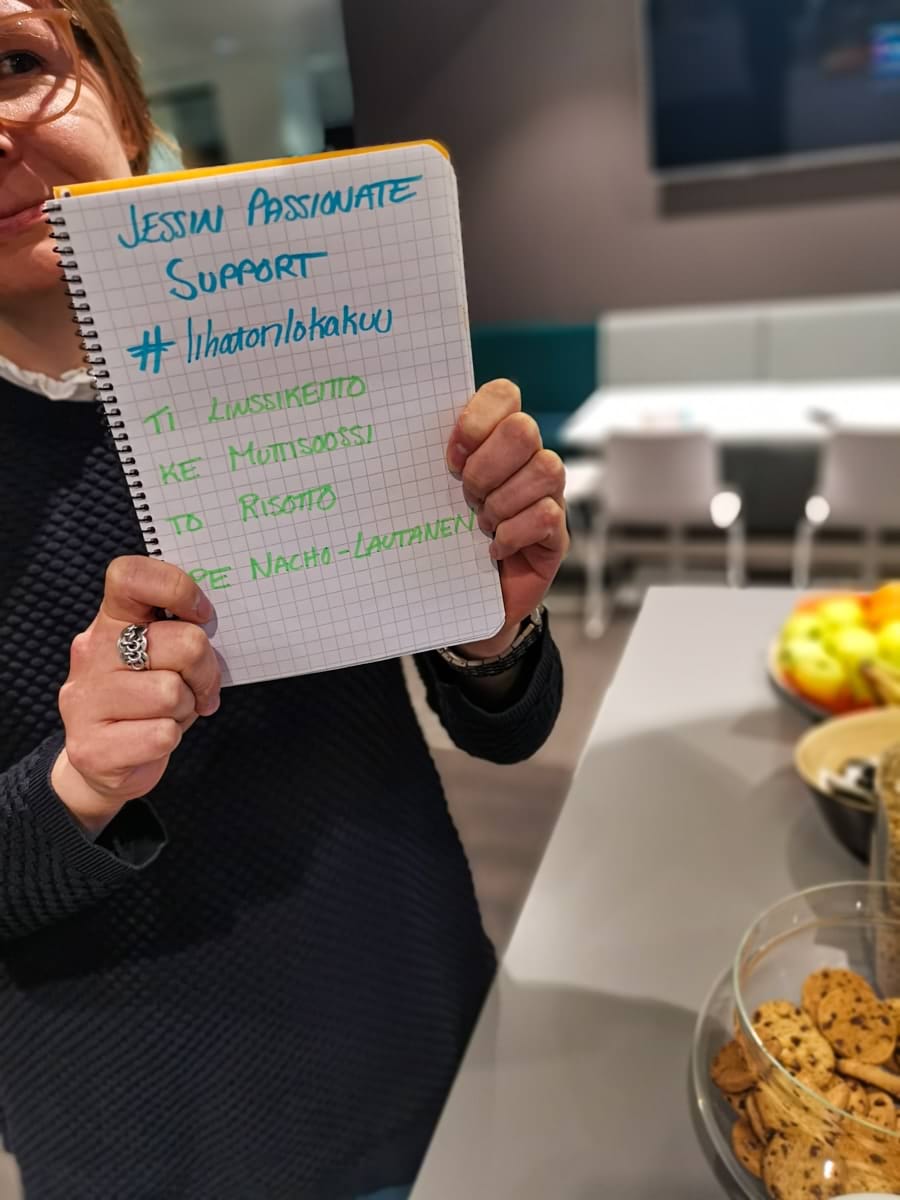 JESSIN PASSIONATE
SUPPORT
#lihatonlokakuu
TI LINSSIKEITTO
KE MUTTISOOSSI
TO RISOTTO
PE NACHO-LAUTANEN